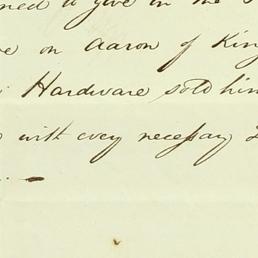 to give in the
on Aaron of King
Hardware sold him
with every necessary